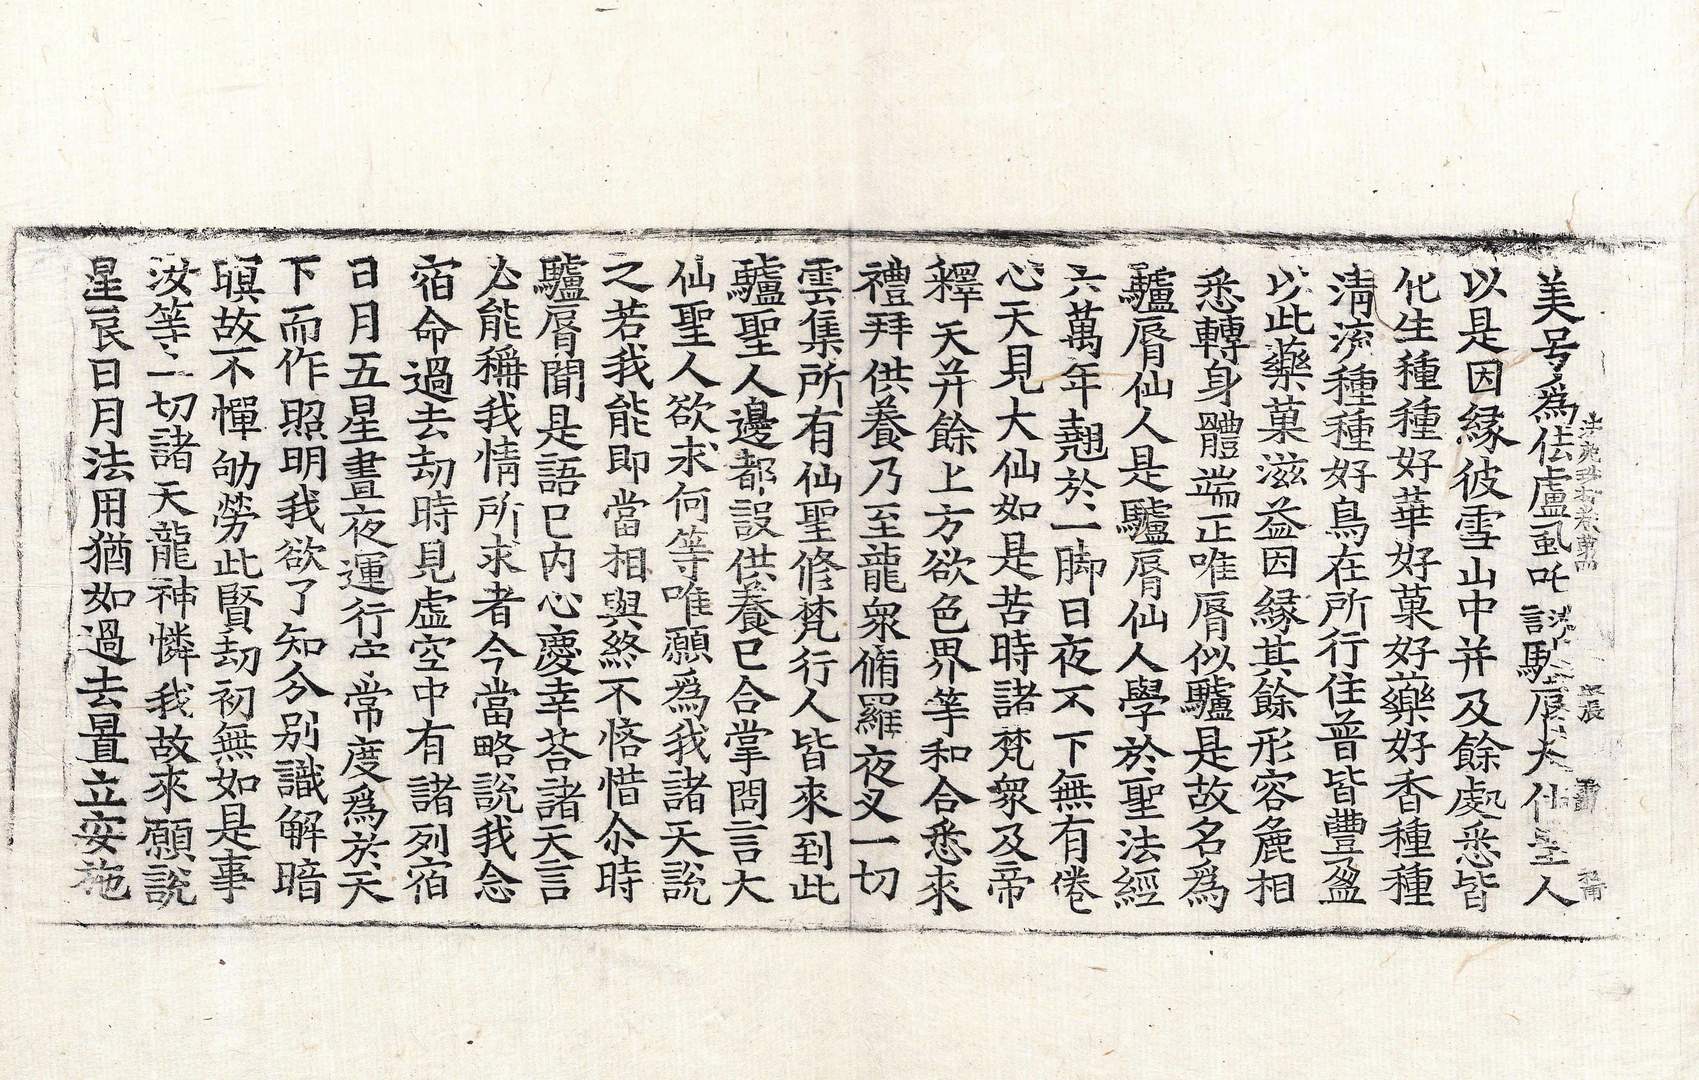 美号爲佉盧虱吒 大仙聖人
以是因縁彼雪山中并及餘處悉皆
化生種種好華好菓好藥好香種種
清流種種好鳥在所行住普皆豐盈
以此藥菓滋益因縁其餘形容麁相
悉轉身體端正唯脣似驢是故名爲
驢脣仙人是驢脣仙人學於聖法經
六萬年翹於一脚日夜不下無有倦
心天見大仙如是苦時諸梵衆及帝
釋天并餘上方欲色界等和合悉來
禮拜供養乃至龍衆脩羅夜叉一切
雲集所有仙聖修梵行人皆來到此
驢聖人邊都設供養已合掌問言大
仙聖人欲求何等唯願爲我諸天說
之若我能即當相與終不悋惜尒時
驢脣聞是語已内心慶幸荅諸天言
必能稱我情所求者今當略說我念
宿命過去劫時見虛空中有諸列宿
日月五星晝夜運行 常度爲於天
下而作照明我欲了知分別識解暗
瞑故不憚劬勞此賢劫初無如是事
汝等一切諸天龍神憐我故來願說
星辰日月法用猶如過去置立安施